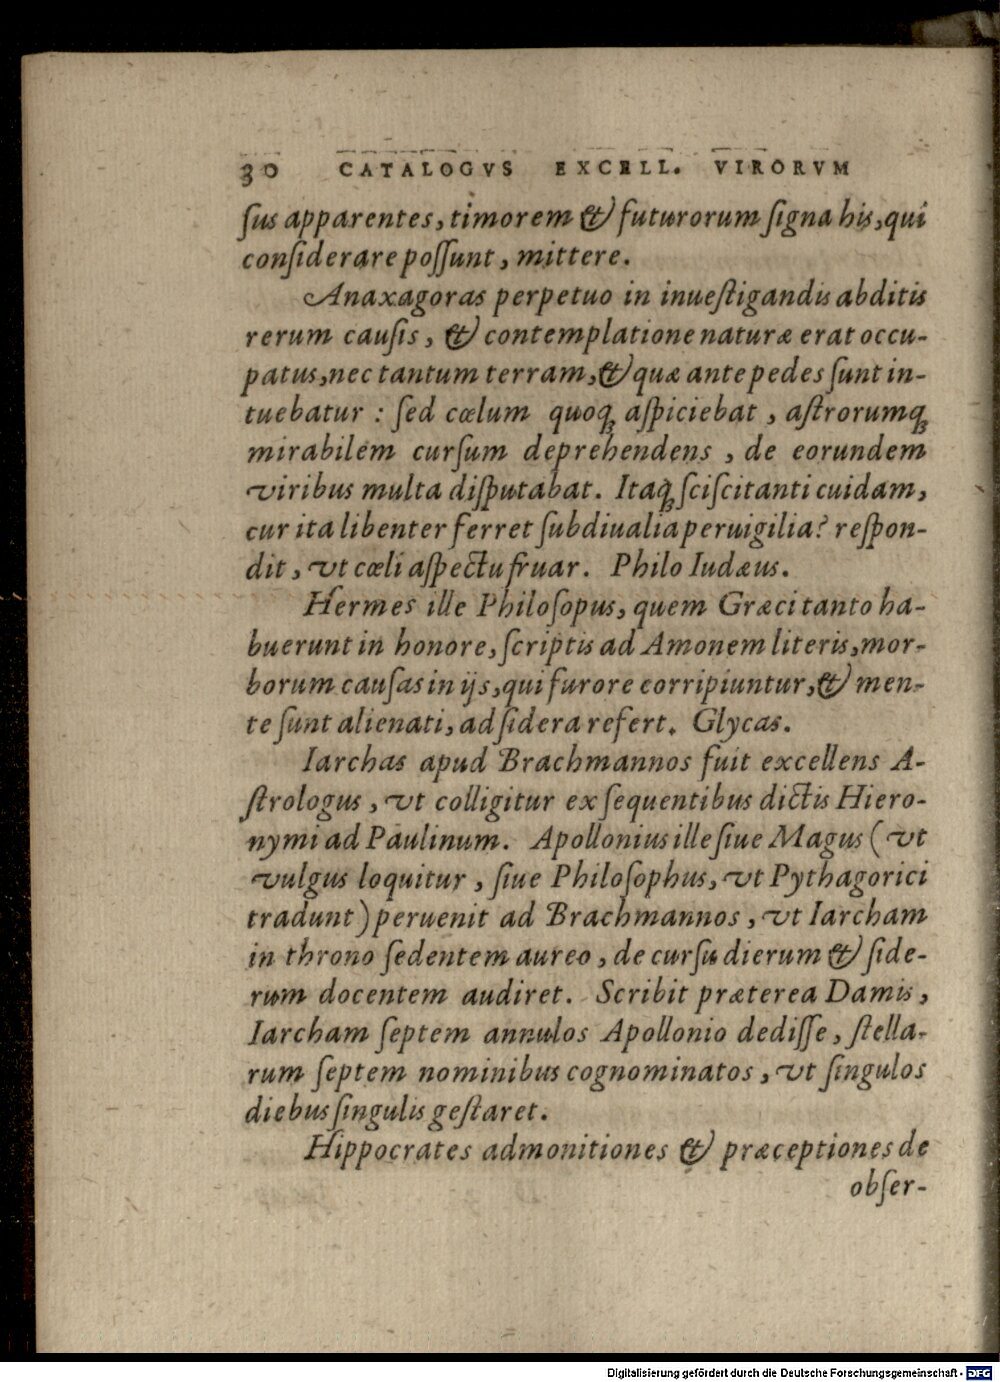 30 CATALOGVS EXCELL. VIRORVM
ſus apparentes, timorem & futurorum ſigna his, qui
conſiderare poſſunt, mittere.
Anaxagoras perpetuo in inueſtigandis abditis
rerum cauſis, & contemplatione naturæ erat occu-
patus, nec tantum terram, & quæ ante pedes ſunt in-
tuebatur : ſed cœlum quoqꝫ aſpiciebat, aſtrorumqꝫ
mirabilem curſum deprehendens, de eorundem
viribus multa diſputabat. Itaqꝫ ſciſcitanti cuidam,
cur ita libenter ferret ſubdiualia peruigilia? reſpon-
dit, vt cœli aſpectu fruar. Philo Iudæus.
Hermes ille Philoſopus, quem Græci tanto ha-
buerunt in honore, ſcriptis ad Amonem literis, mor-
borum cauſas in ijs, qui furore corripiuntur, & men-
te ſunt alienati, ad ſidera refert. Glycas.
Iarchas apud Brachmannos fuit excellens A-
ſtrologus, vt colligitur ex ſequentibus dictis Hiero-
nymi ad Paulinum. Apollonius ille ſiue Magus (vt
vulgus loquitur, ſiue Philoſophus, vt Pythagorici
tradunt) peruenit ad Brachmannos, vt Iarcham
in throno ſedentem aureo, de curſu dierum & ſide-
rum docentem audiret. Scribit præterea Damis,
Iarcham ſeptem annulos Apollonio dediſſe, ſtella-
rum ſeptem nominibus cognominatos, vt ſingulos
diebus ſingulis geſtaret.
Hippocrates admonitiones & præceptiones de
obſer-
Digitalisierung gefördert durch die Deutsche Forschungsgemeinschaft - DFG